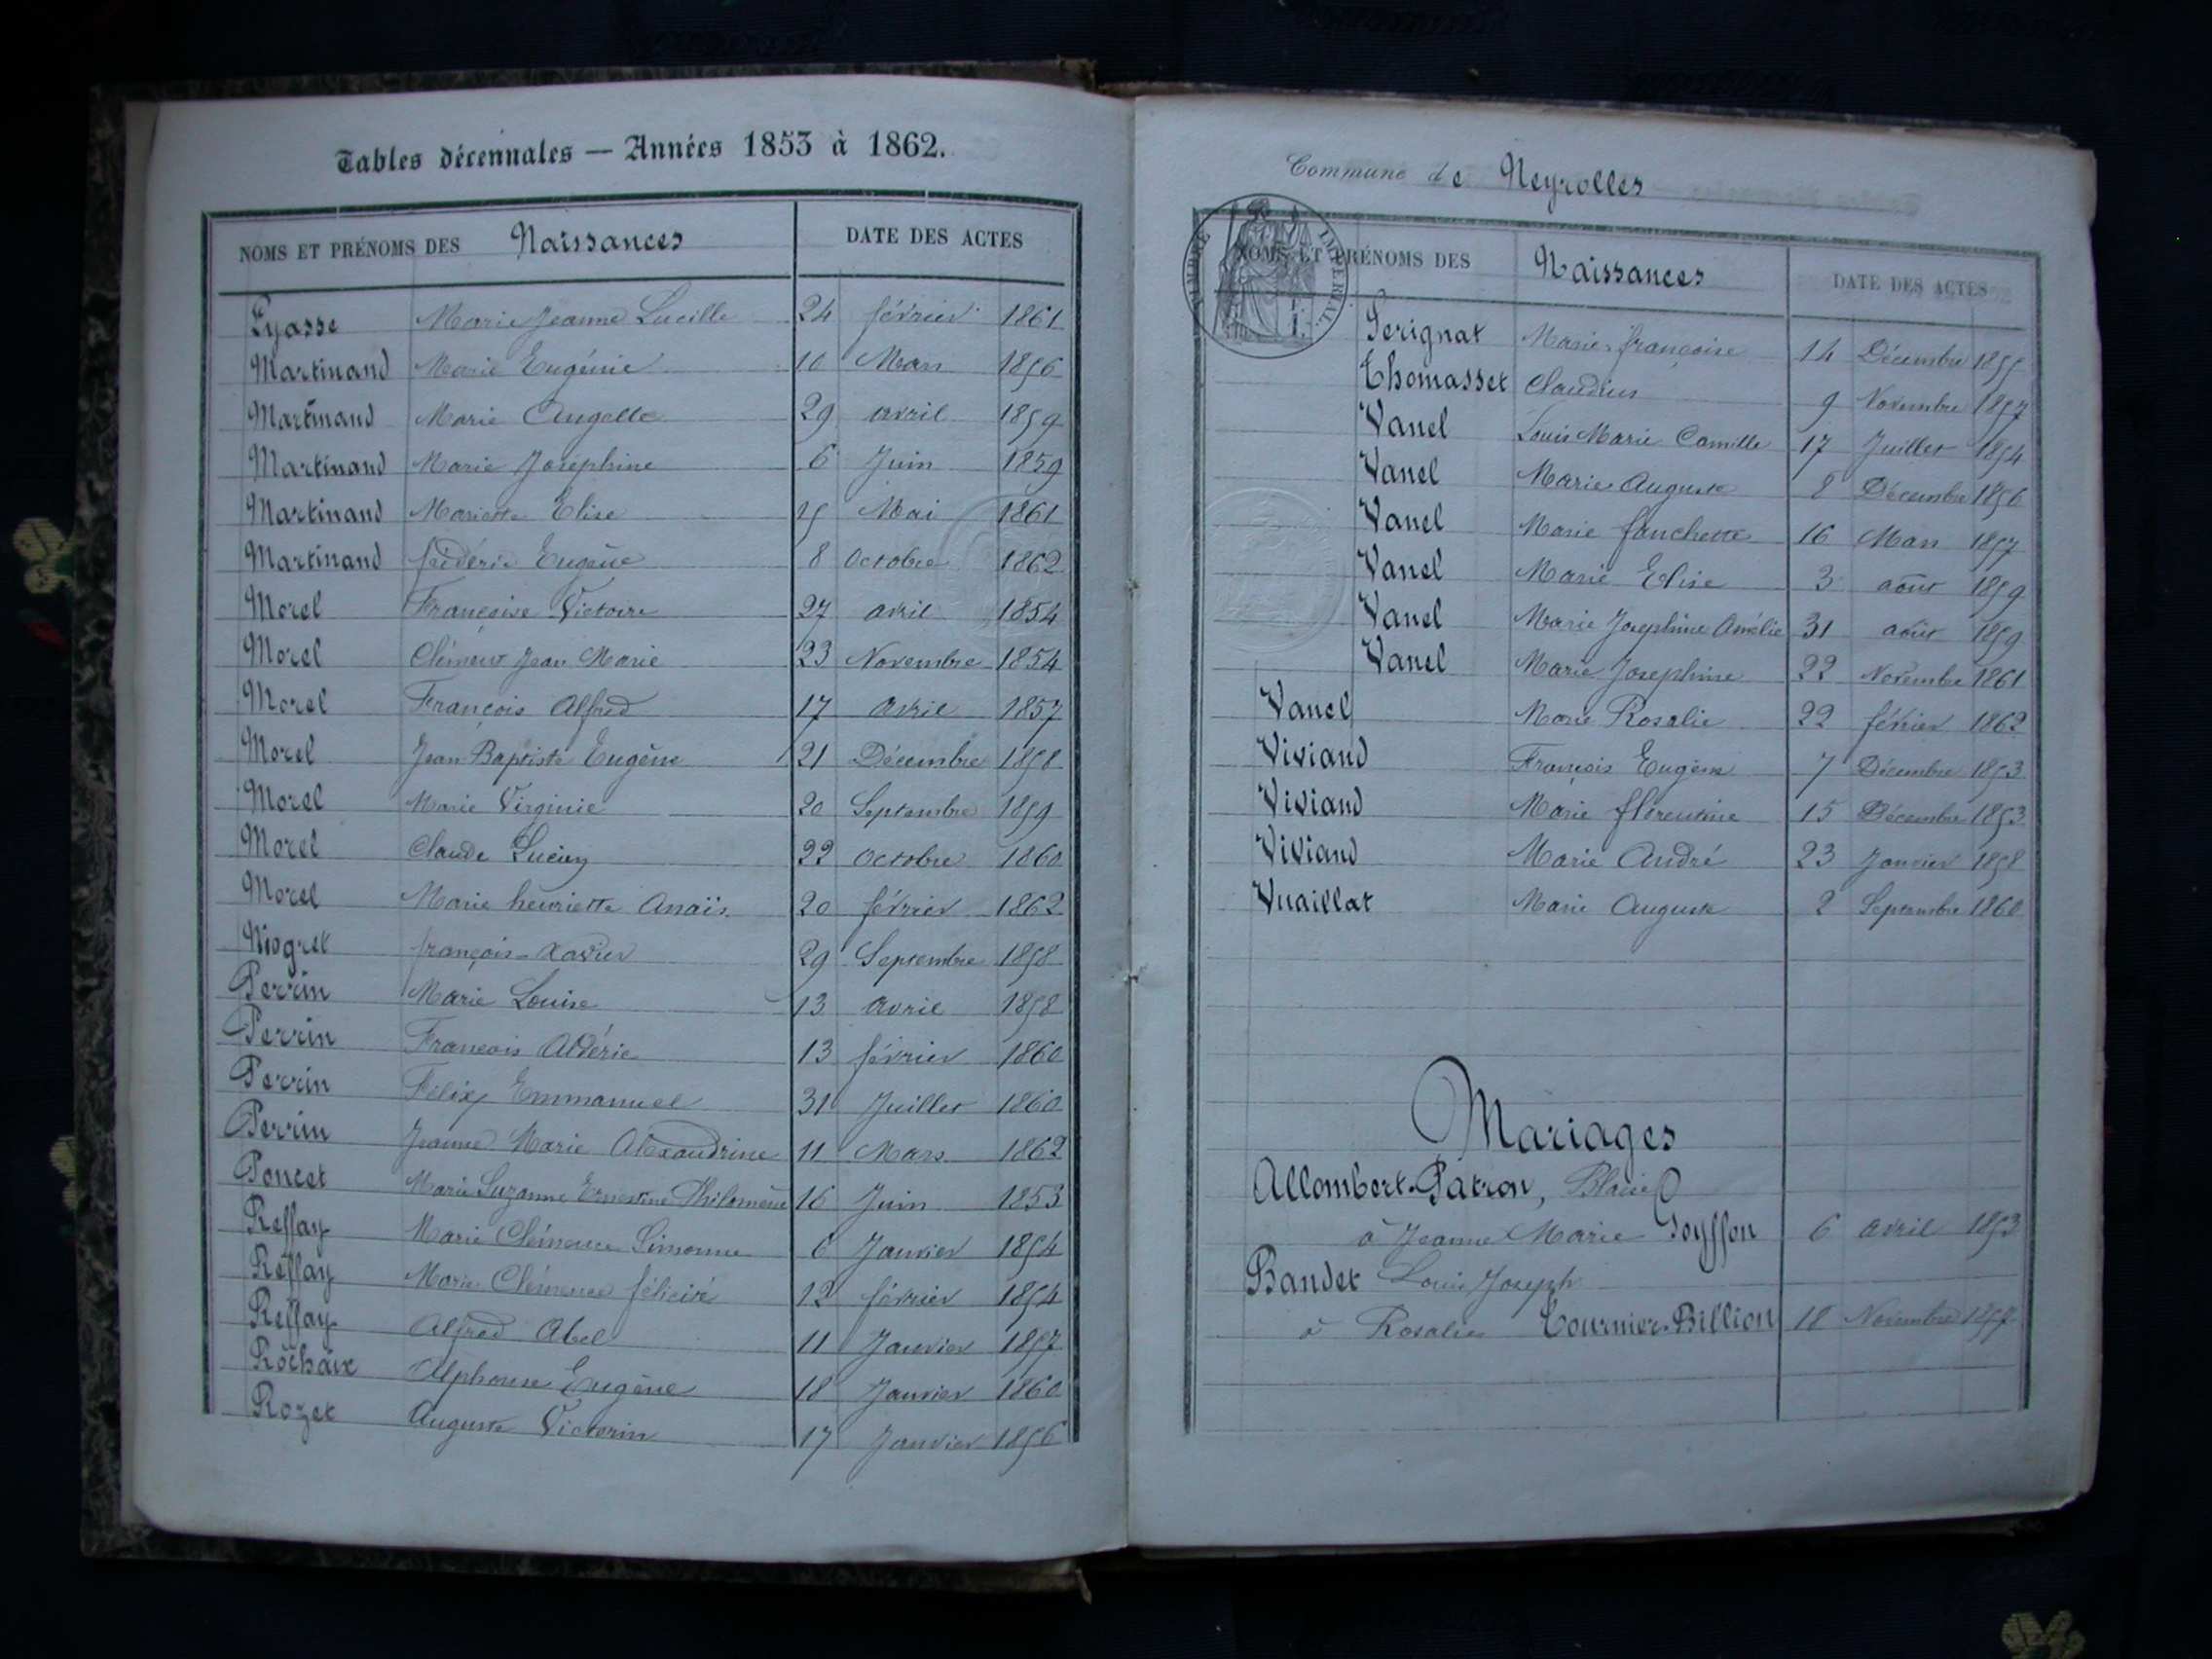 Tables décennales — Années 1853 à 1862.
NOMS ET PRÉNOMS DES Naissances DATE DES ACTES
Lyasse Marie Jeanne Lucille 24 février 1861
Martinand Marie Eugénie 10 Mars 1856
Martinand Marie Angelle 29 avril 1859
Martinand Marie Joséphine 6 Juin 1859
Martinand Mariette Elise 15 Mai 1861
Martinand frédéric Eugène 8 Octobre 1862
Morel Françoise Victoire 27 avril 1854
Morel Clément Jean Marie 23 Novembre 1854
Morel François Alfred 17 Avril 1857
Morel Jean Baptiste Eugène 21 Décembre 1858
Morel Marie Virginie 20 Septembre 1859
Morel Claude Lucien 22 octobre 1860
Morel Marie henriette Anaïs 20 février 1862
Niogret françois-xavier 29 Septembre 1858
Perrin Marie Louise 13 avril 1858
Perrin François Aldéric 13 février 1860
Perrin Félix Emmanuel 31 Juillet 1860
Perrin Jeanne Marie Alexandrine 11 Mars 1862
Poncet Marie Suzanne Ernestine Philomène 16 Juin 1853
Reffay Marie Clémence Simonne 6 Janvier 1854
Reffay Marie Clémence félicité 12 février 1854
Reffay Alfred Abel 11 Janvier 1857
Rochaix Alphonse Eugène 18 Janvier 1860
Rozet Auguste Victorin 17 Janvier 1856
Commune de Neyrolles
TIMBRE IMPÉRIAL
NOMS ET PRÉNOMS DES Naissances DATE DES ACTES
Serignat Marie françoise 14 Décembre 1855
Thomasset Claudius 9 Novembre 1857
Vanel Louis Marie Camille 17 Juillet 1854
Vanel Marie Auguste 8 Décembre 1856
Vanel Marie fanchette 16 Mars 1857
Vanel Marie Elise 3 août 1859
Vanel Marie Josephine Amélie 31 août 1859
Vanel Marie Josephine 22 Novembre 1861
Vanel Marie Rosalie 22 février 1862
Viviand François Eugène 7 Décembre 1853
Viviand Marie florentine 15 Décembre 1853
Viviand Marie André 23 Janvier 1858
Vuaillat Marie Auguste 2 Septembre 1860
Mariages
Allombert-Patron,
à Jeanne Marie Goyffon 6 avril 1853
Bandet Louis Joseph
à Rosalie Tournier-Billion 18 Novembre 1857